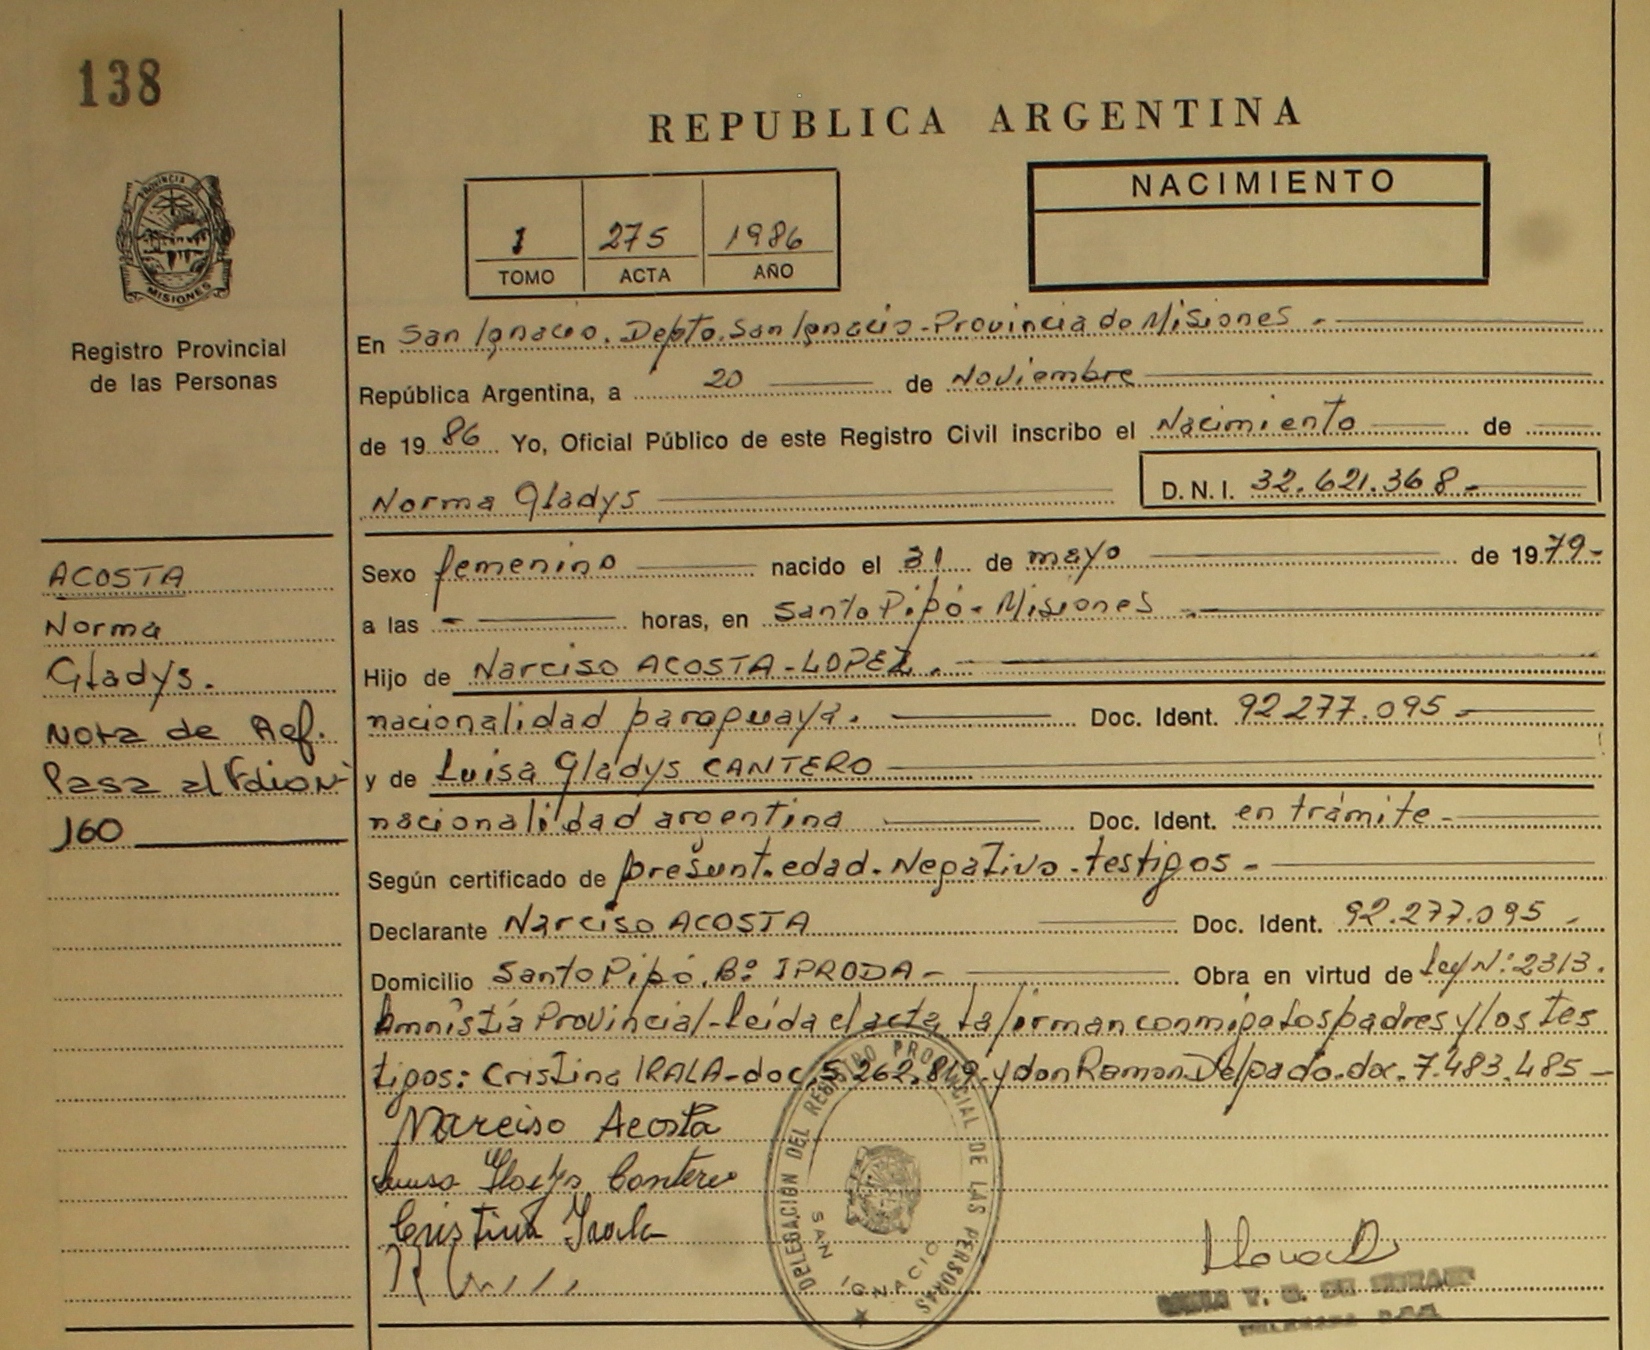 138
REPUBLICA ARGENTINA
NACIMIENTO
1 275 1986
TOMO ACTA AÑO
PROVINCIA DE
MISIONES
Registro Provincial
de las Personas
En San Ignacio. Depto. San Ignacio - Provincia de Misiones -
República Argentina, a 20 de Noviembre
de 1986 Yo, Oficial Público de este Registro Civil inscribo el Nacimiento de
Norma Gladys D.N.I. 32.621.368-
ACOSTA
Norma
Gladys.
Nota de Ref.
Pasa al
160
Sexo femenino nacido el 31 de mayo de 1979-
a las - horas, en Santo Pipó - Misiones -
Hijo de Narciso ACOSTA - LOPEZ. -
nacionalidad paraguaya. Doc. Ident. 92 277.095 -
y de Luisa Gladys CANTERO
nacionalidad argentina Doc. Ident. en trámite -
Según certificado de presunt. edad. Negativo - testigos -
Declarante Narciso ACOSTA Doc. Ident. 92.277.095 -
Domicilio Santo Pipó. Bº IPRODA - Obra en virtud de ley Nº 2313.
Amnistía Provincial - leída el acta, la firman conmigo los padres y los tes
tigos: Cristina IRALA - doc. 5.262.819 - y don Ramon Delgado. doc. 7.483.485 -
Narciso Acosta
Luisa Gladys Cantero
Cristina Irala
DELEGACIÓN DEL REGISTRO PROVINCIAL DE LAS PERSONAS
SAN IGNACIO